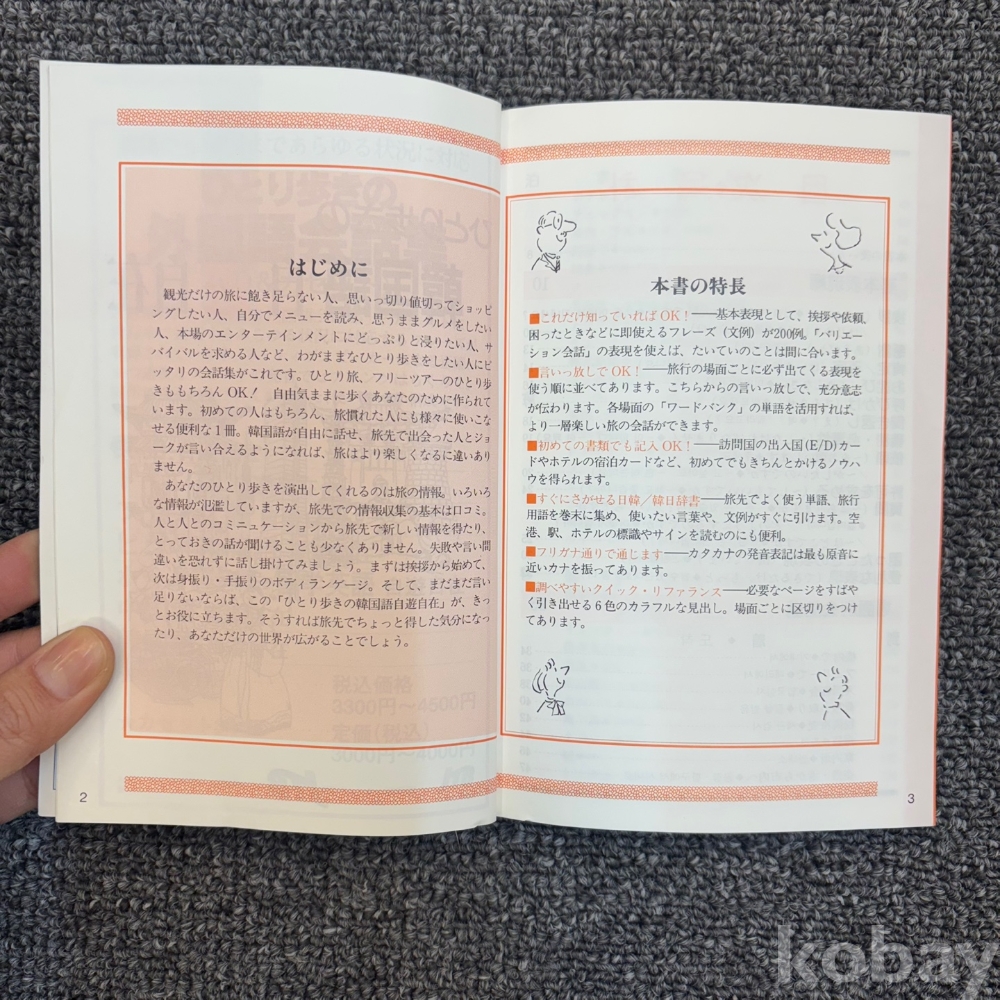 はじめに
観光だけの旅に飽き足らない人、思いっ切り値切ってショッピ
ングしたい人、自分でメニューを読み、思うままグルメをしたい
人、本場のエンターテインメントにどっぷりと浸りたい人、サ
バイバルを求める人など、わがままなひとり歩きをしたい人にピ
ッタリの会話集がこれです。ひとり旅、フリーツアーのひとり歩
きももちろんOK! 自由気ままに歩くあなたのために作られて
います。初めての人はもちろん、旅慣れた人にも様々に使いこな
せる便利な1冊。韓国語が自由に話せ、旅先で出会った人とジョ
ークが言い合えるようになれば、旅はより楽しくなるに違いあり
ません。
あなたのひとり歩きを演出してくれるのは旅の情報。いろいろ
な情報が氾濫していますが、旅先での情報収集の基本は口コミ。
人と人とのコミニュケーションから旅先で新しい情報を得たり、
とっておきの話が聞けることも少なくありません。失敗や言い間
違いを恐れずに話し掛けてみましょう。まずは挨拶から始めて、
次は身振り・手振りのボディランゲージ。そして、まだまだ言い
足りないならば、この「ひとり歩きの韓国語自遊自在」が、きっ
とお役に立ちます。そうすれば旅先でちょっと得した気分になっ
たり、あなただけの世界が広がることでしょう。
税込価格
3300円〜4500円
定価(税込)
3000円〜4000円
2
本書の特長
■これだけ知っていればOK!――基本表現として、挨拶や依頼、
困ったときなどに即使えるフレーズ(文例)が200例。「バリエ
ーション会話」の表現を使えば、たいていのことは間に合います。
■言いっ放しでOK!――旅行の場面ごとに必ず出てくる表現を
使う順に並べてあります。こちらからの言いっ放しで、充分意志
が伝わります。各場面の「ワードバンク」の単語を活用すれば、
より一層楽しい旅の会話ができます。
■初めての書類でも記入OK!――訪問国の出入国(E/D)カー
ドやホテルの宿泊カードなど、初めてでもきちんとかけるノウハ
ウを得られます。
■すぐにさがせる日韓/韓日辞書――旅先でよく使う単語、旅行
用語を巻末に集め、使いたい言葉や、文例がすぐに引けます。空
港、駅、ホテルの標識やサインを読むのにも便利。
■フリガナ通りで通じます――カタカナの発音表記は最も原音に
近いカナを振ってあります。
■調べやすいクイック・リファランス――必要なページをすばや
く引き出せる6色のカラフルな見出し。場面ごとに区切りをつけ
てあります。
3
kobay